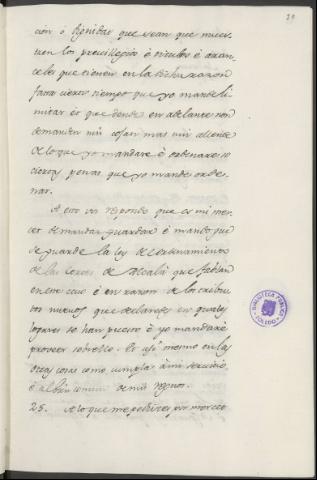 21
cion ó dignidat que sean que mues-
tren los previllegios é titulos é aran-
celes que tienen en la dicha razon
fasta cierto tiempo que yo mande li-
mitar é que dende en adelante non
demanden nin cojan mas nin aliende
de lo que yo mandare é ordenare so
ciertas penas que yo mande orde-
nar.
A esto vos respondo que es mi mer-
ced de mandar guardar é mando que
se guarde la ley de ordenamiento
de las Cortes de Alcalá que fablan
en este caso é en razon de los tribu-
tos nuevos que declaredes en quales
logares se han puesto é yo mandaré
proveer sobrello. Et asi mesmo en las
otras cosas como cumpla á mi servicio
é al bien comun de mis regnos.
25. A lo que me pedistes por merced
BIBLIOTECA PUBLICA
TOLEDO